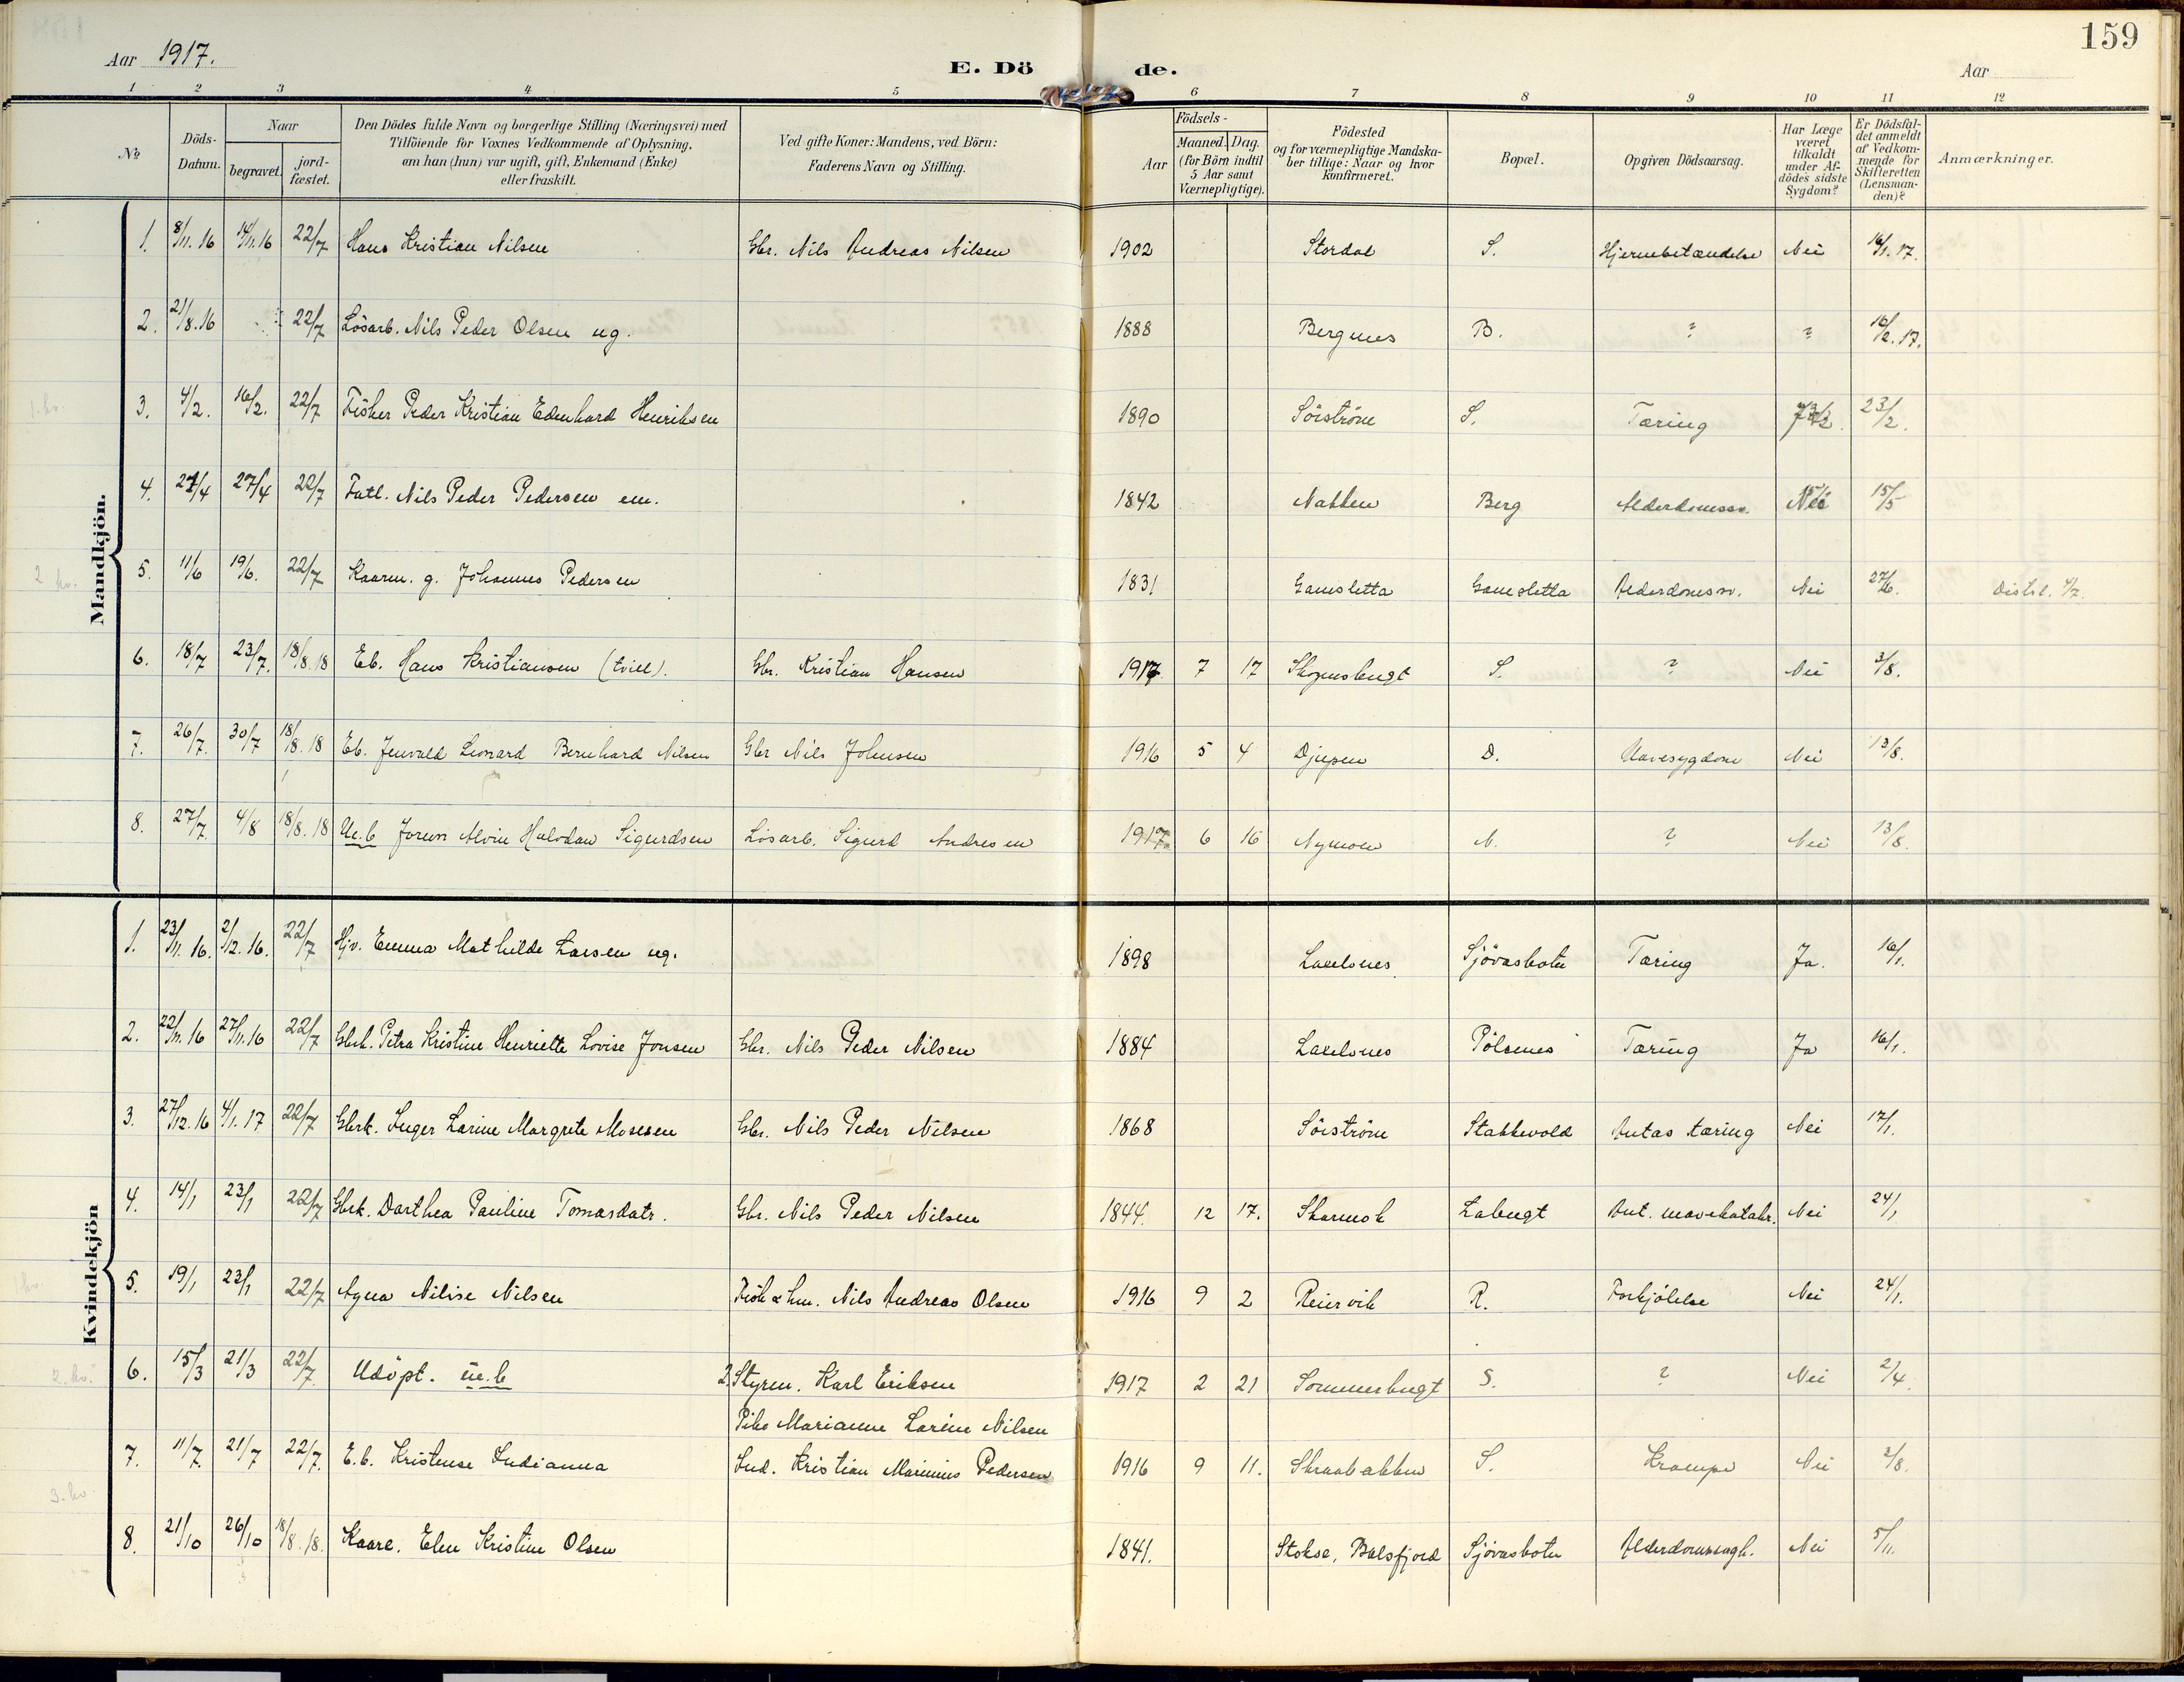 159
Aar 1917.
E. Döde.
Aar
1 2 3 4 5 6 7 8 9 10 11 12
№
Döds-Datum.
Naar
begravet.
jordfæstet.
Den Dödes fulde Navn og borgerlige Stilling (Næringsvei) med
Tilföiende for Voxnes Vedkommende af Oplysning,
om han (hun) var ugift, gift, Enkemand (Enke)
eller fraskilt.
Ved gifte Koner: Mandens, ved Börn:
Faderens Navn og Stilling.
Födsels-
Aar
Maaned. Dag.
(for Börn indtil
5 Aar samt
Værnepligtige).
Födested
og for værnepligtige Mandska-
ber tillige: Naar og hvor
konfirmeret.
Bopæl.
Opgiven Dödsaarsag.
Har Læge
været
tilkaldt
under Af-
dödes sidste
Sygdom?
Er Dödsfal-
det anmeldt
af Vedkom-
mende for
Skifteretten
(Lensman-
den)?
Anmærkninger.
Mandkjön.
1. 8/11.16 14/11.16 22/7 Hans Kristian Nilsen Gbr. Nils Andreas Nilsen 1902 Stordal S. Hjernebetændelse Nei 16/1.17.
2. 21/8.16 22/7 Lösarb. Nils Peder Olsen ug. 1888 Bergnes B. ? ? 16/2.17.
3. 4/2. 16/2. 22/7 Fisker Peder Kristian Edenhard Henriksen 1890 Söiström S. Tæring 23/2.
4. 22/4 27/4 22/7 Fatl. Nils Peder Pedersen em. 1842 Nakken Berg Alderdomssv. Nei 15/5
5. 11/6 19/6. 22/7 Kaarm. g. Johannes Pedersen 1831 Gamsletta Gamsletta Alderdomssv. Nei 27/6. Distrl. 4/7.
6. 18/7 23/7. 18/8.18 Eb. Hans Kristiansen (tvill). Gbr. Kristian Hansen 1917 7 17 Skognsbugt S. ? Nei 3/8.
7. 26/7. 30/7 18/8.18 Eb. Jenvald Leonard Bernhard Nilsen Gbr Nils Johnsen 1916 5 4 Djupen D. Mavesygdom Nei 13/8.
8. 27/7. 4/8 18/8.18 Ue.b Alvin Halvdan Sigurdsen Lösarb. Sigurd Andresen 1917 6 16 Nymoen N. ? Nei 13/8.
Kvindekjön
1. 23/11.16. 2/12.16. 22/7 Hjv. Emma Mathilde Larsen ug. 1898 Lakselvnes Sjövasbotn Tæring Ja. 16/1.
2. 22/11.16 27/11.16 22/7 Gbrk. Petra Kristine Henriette Lovise Jonsen Gbr. Nils Peder Nilsen 1884 Lakselvnes Pölsenes Tæring Ja 16/1.
3. 27/12.16 4/1.17 22/7 Gbrk. Inger Larine Margrete Mosesen Gbr. Nils Peder Nilsen 1868 Söiström Stakkevold Antas tæring Nei 17/1.
4. 14/1 23/1 22/7 Gbrk. Dorthea Pauline Tomasdatr. Gbr. Nils Peder Nilsen 1844. 12 17. Skarmok Labugt Ant. mavekatahr. Nei 24/1
5. 19/1 23/1 22/7 Agna Nilise Nilsen Fisk & hm. Nils Andreas Olsen 1916 9 2 Reiervik R. Forkjölelse Nei 24/1.
6. 15/3 21/3 22/7. Udöpt. ue.b 2. Styrm. Karl Eriksen 1917 2 21 Sommerbugt S. ? Nei 2/4.
Pike Marianne Larine Nilsen
7. 11/7. 21/7 22/7. E.b. Kristense Indianna Ind. Kristian Marinius Pedersen 1916 9 11. Skraabakken S. Krampe Nei 3/8.
8. 21/10 26/10 18/8.18. Kaare. Elen Kristine Olsen 1841. Stokse, Balsfjord Sjövasbotn Nei 5/11.
1. kv.
2 kv.
1kv.
2. kv.
3. kv.